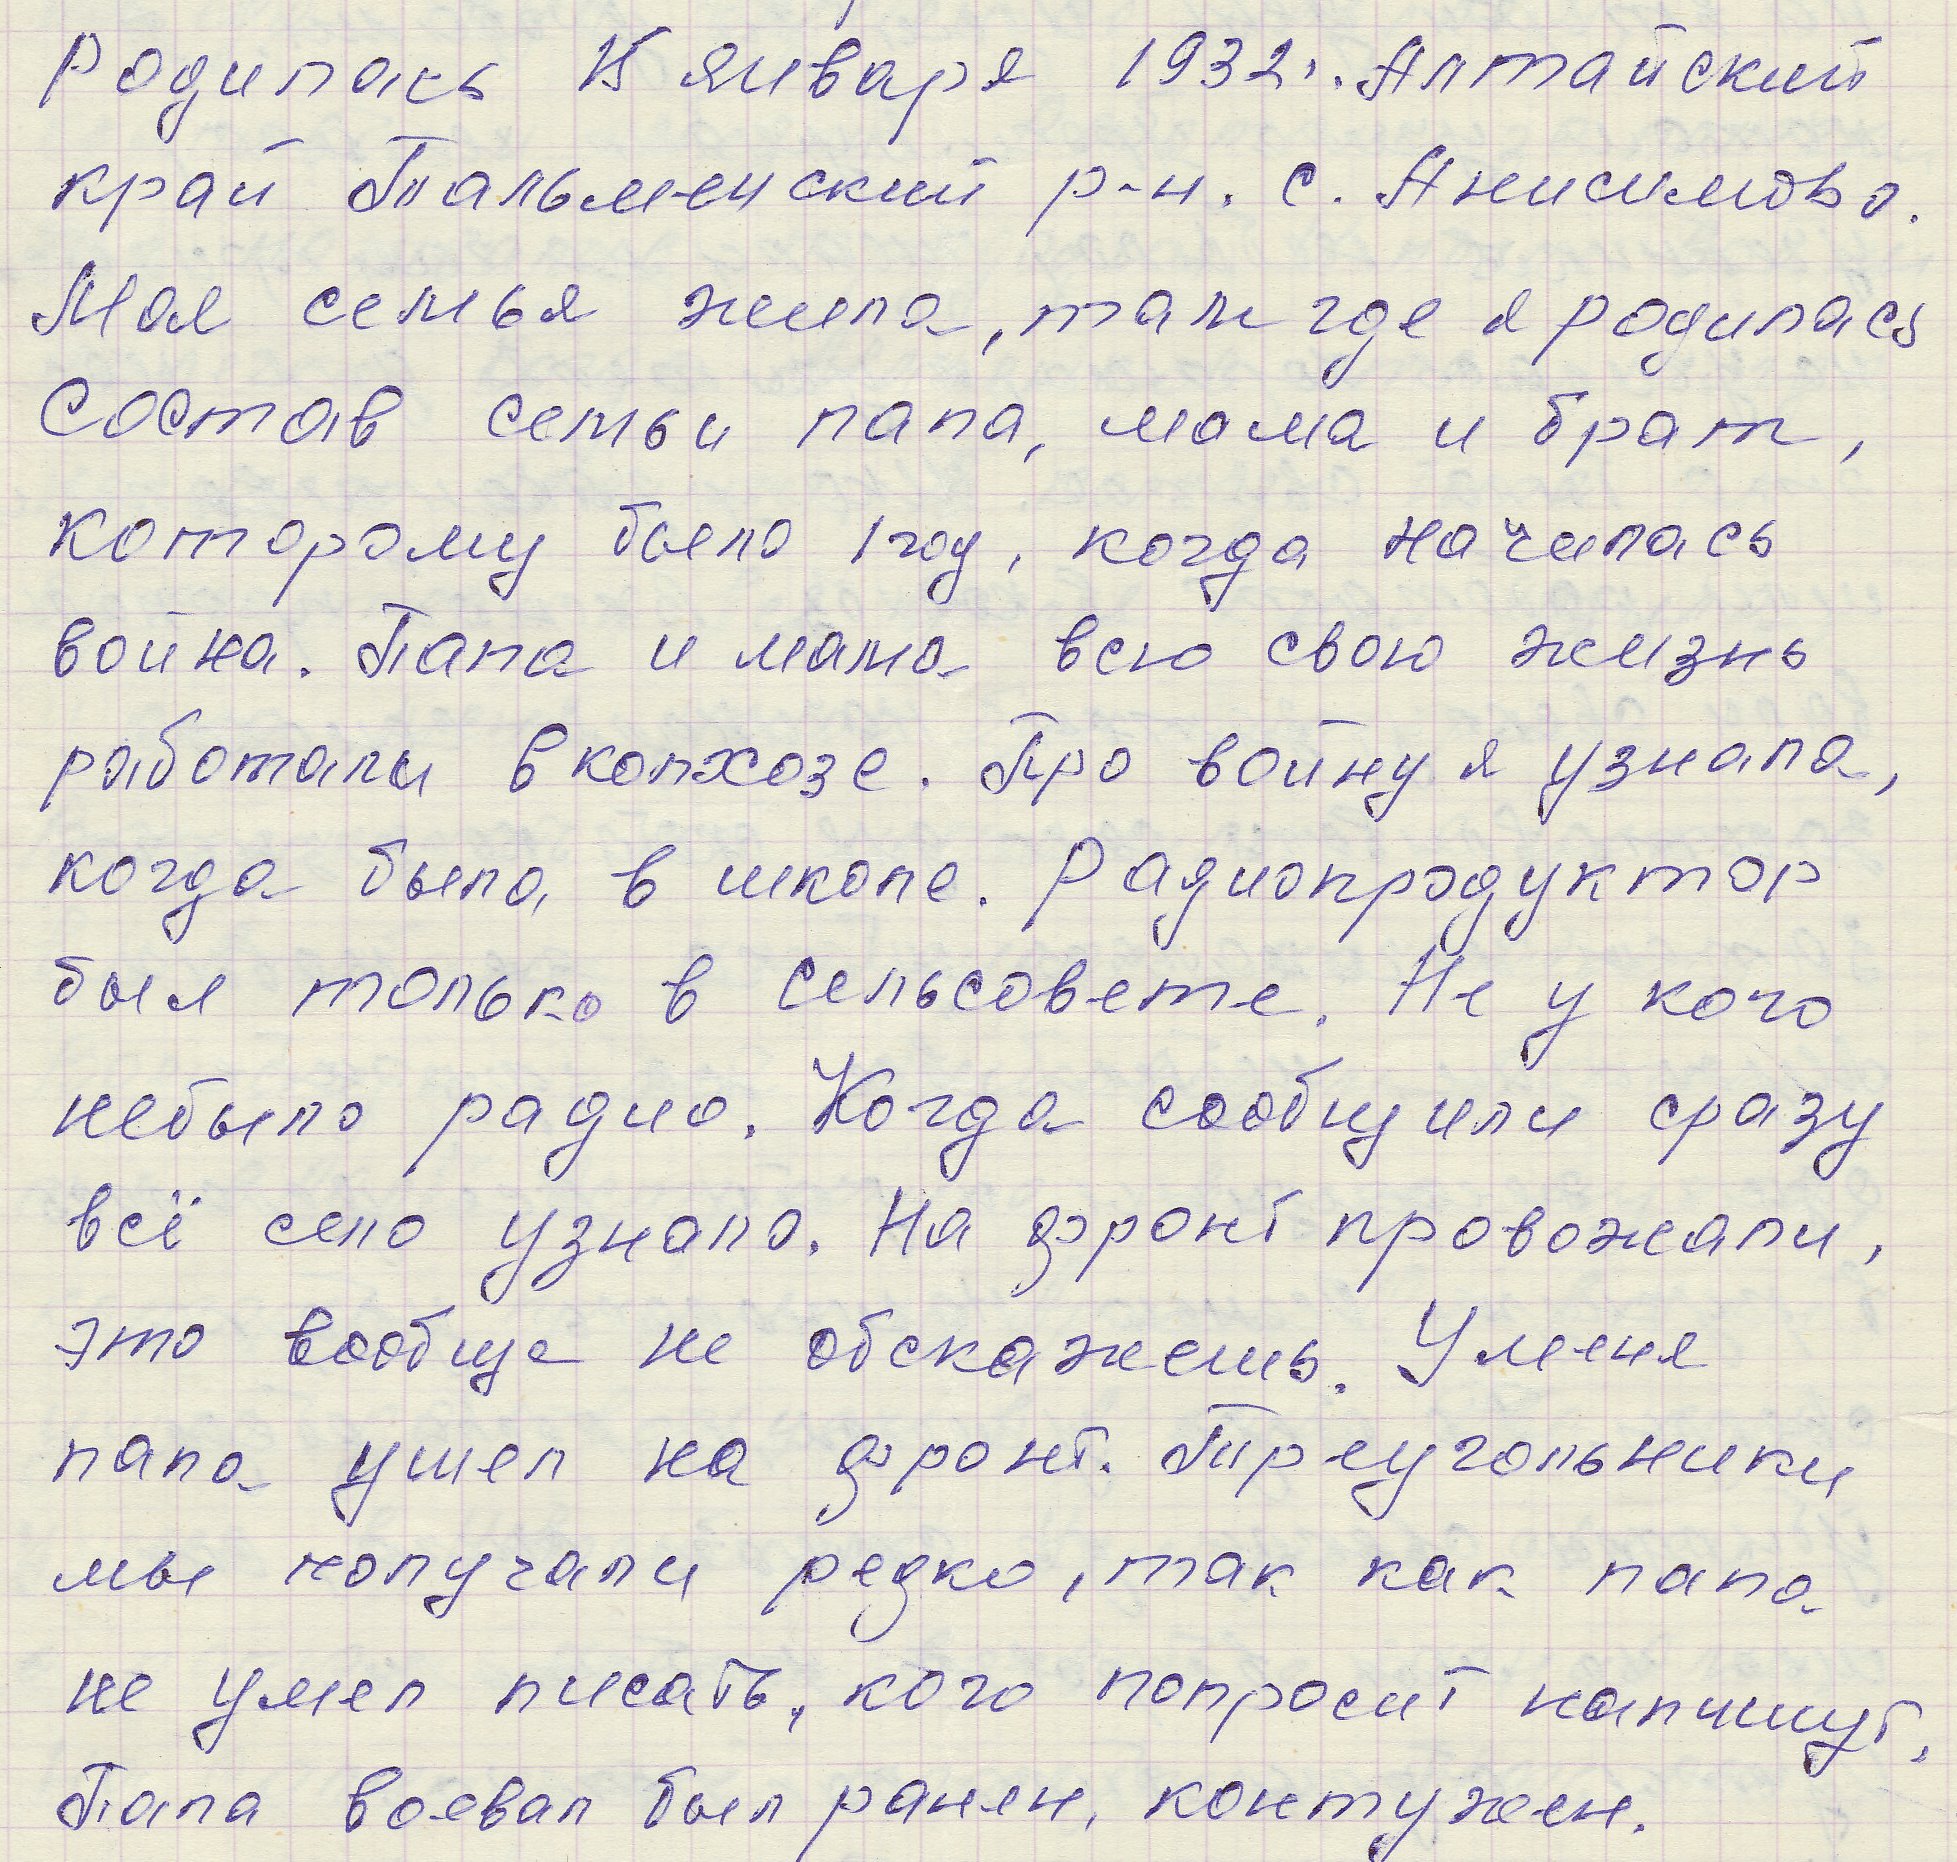 Родилась 15 января 1932г. Алтайский
край Тальменский р-н. с. Анисимово.
Моя семья жила, там где я родилась
Состав семьи папа, мама и брат,
которому было 1 год, когда началась
война. Папа и мама всю свою жизнь
работали в колхозе. Про войну я узнала,
когда была в школе. Радиопродуктор
был только в сельсовете. Не у кого
небыло радио. Когда сообщили сразу
всё село узнало. На фронт провожали,
это вообще не обскажешь. У меня
папа ушел на фронт. Треугольники
мы получали редко, так как папа
не умел писать, кого попросит напишут.
Папа воевал был ранен, контужен.